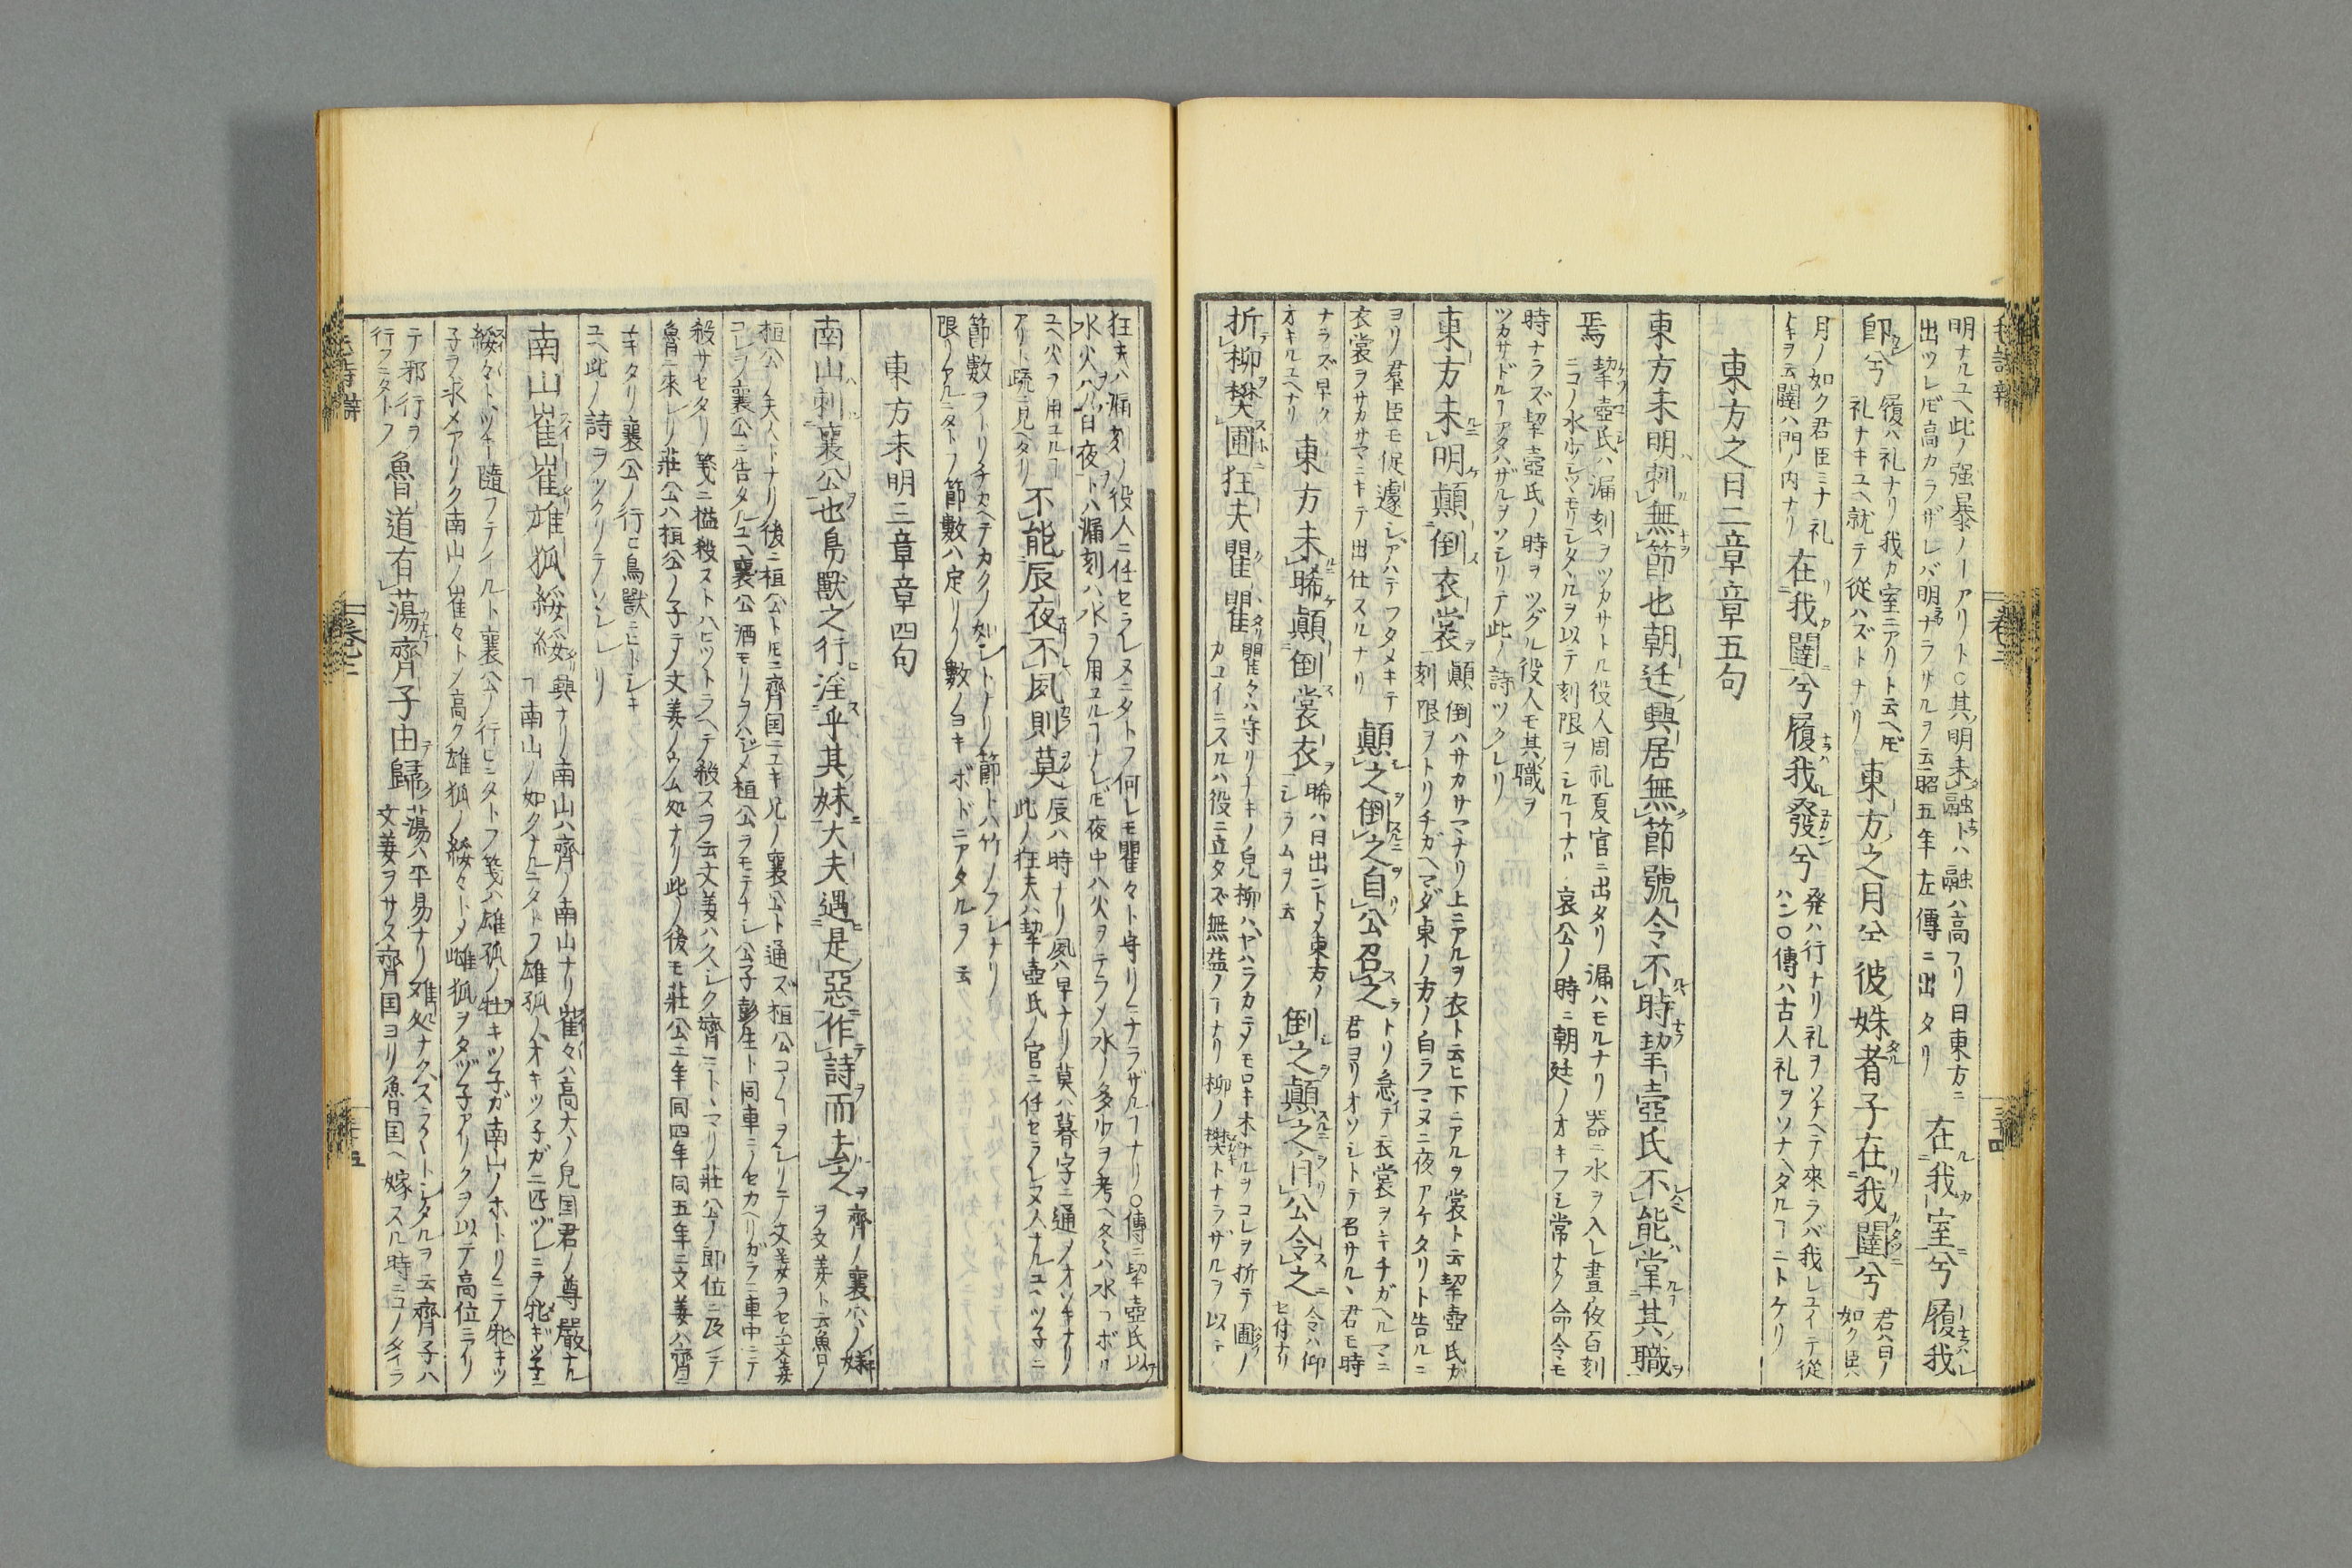 明ナルユヘ此ノ強暴ノヿアリト○其ノ明未融トハ融ハ高フリ日東方ニ
出ツレ𪜈高カラザレバ明ナラザルヲ云昭五年左傳ニ出タリ
在我室兮履我
即兮
履ハ礼ナリ我カ室ニアリト云ヘ𪜈
礼ナキユヘ就テ從ハズトナリ
東方之月兮彼姝者子在我闥兮
君ハ日ノ
如ク臣ハ
月ノ如ク君臣ミナ礼
ナキヲ云闥ハ門ノ内ナリ
在我闥兮履我發兮
発ハ行ナリ礼ヲソナヘテ來ラバ我レユイテ從
ハン○傳ハ古人礼ヲソナヘタルヿニトケリ
東方之日二章章五句
東方未明刺無節也朝廷興居無節號令不時挈壺氏不能掌其職
焉
挈壺氏ハ漏刻ヲツカサトル役人周礼夏官ニ出タリ漏ハモルナリ器ニ水ヲ入レ晝夜百刻
ニコノ水
ヲ以テ刻限ヲシルヿナリ哀公ノ時ニ朝廷ノオキフシ常ナク命令モ
時ナラズ挈壺氏ノ時ヲツグル役人モ其職ヲ
ツカサドルヿアタハザルヲソシリテ此ノ詩ツクレリ
東方未明顛倒衣裳
顛倒ハサカサマナリ上ニアルヲ衣ト云ヒ下ニアルヲ裳ト云挈壺氏ガ
刻限ヲトリチガヘマダ東ノ方ノ白ラマヌニ夜アケタリト告ルニ
ヨリ群臣モ促遽シアハテフタメキテ
衣裳ヲサカサマニキテ出仕スルナリ
顛之倒之自公召之
トリ急イテ衣裳ヲキチガヘルマニ
君ヨリオソシトテ召サルヽ君モ時
ナラズ早ク
オキルユヘナリ
東方未晞顛倒裳衣
晞ハ日出ントメ東方ノ
シラムヲ云
倒之顛之自公令之
令ハ仰
セ付ナリ
折柳樊圃狂夫瞿瞿
瞿々ハ守リナキノ皃柳ハヤハラカニメモロキ木ナルヲコレヲ折テ圃ノ
カユイニスルハ役ニ立タズ無益ノヿナリ柳ノ樊トナラザルヲ以テ
狂夫ハ漏刻ノ役人ニ任セラレヌニタトフ何レモ瞿々ト守リニナラザルヿナリ○傳ニ挈壺氏以
水火
日夜トハ漏刻ハ水ヲ用ユルヿナレ𪜈夜中ハ火ヲテラメ水ノ多少ヲ考ヘ冬ハ水コボル
ユヘ火ヲ用ユルヿ
アリト疏ニ見ヘタリ
不能辰夜不夙則莫
辰ハ時ナリ夙ハ早ナリ莫ハ暮字ニ通メオソキナリ
此ノ狂夫ハ挈壺氏ノ官ニ任セラレヌ人ナルユヘツ子ニ
節數ヲトリチガヘテカクノ如シトナリ節トハ竹ノフシナリ
限リアルニタトフ節數ハ定リノ數ノヨキホドニアタルヲ云
東方未明三章章四句
南山刺襄公也鳥獸之行淫乎其妹大夫遇是惡作詩而去之
齊ノ襄公ノ妹
ヲ文姜ト云魯ノ
桓公ノ夫人トナリ後ニ桓公ト𪜈ニ齊国ニユキ兄ノ襄公ト通ズ桓公コノヿヲシリテ文姜ヲセム文姜
コレヲ襄公ニ告タルユヘ襄公酒モリヲハジメ桓公ヲモテナシ公子彭生ト同車ニノセカヘリガケニ車中ニテ
殺サセタリ箋ニ搤殺ストハヒットラヘテ殺スヲ云文姜ハ久シク齊ニトヽマリ莊公ノ即位ニ及ンデ
魯ニ來レリ莊公ハ桓公ノ子テ文姜ノウム処ナリ此ノ後モ莊公二年同四年同五年ニ文姜ハ齊ニ
ユキタリ襄公ノ行ヒ鳥獸ニヒトシキ
ユヘ此ノ詩ヲツクリテソシレリ
南山崔崔雄狐綏綏
興ナリ南山ハ齊ノ南山ナリ崔々ハ高大ノ皃国君ノ尊嚴ナル
ヿ南山ノ如クナルニタトフ雄狐ハオキツ子ガ二匹ヅレニテ牝ギツ子ニ
綏々トツキ隨フテイルト襄公ノ行ヒニタトフ箋ハ雄狐ノ牡キツ子ガ南山ノホトリニテ牝キツ
子ヲ求メアリク南山ノ崔々トメ高ク雄狐ノ綏々トメ雌狐ヲタヅ子アリクヲ以テ高位ニアリ
テ邪行ヲ
行フニタトフ
魯道有蕩齊子由歸
蕩ハ平易ナリ難処ナクスラ〳〵トシタルヲ云齊子ハ
文姜ヲサス齊国ヨリ魯国ヘ嫁スル時ニコノタイラ